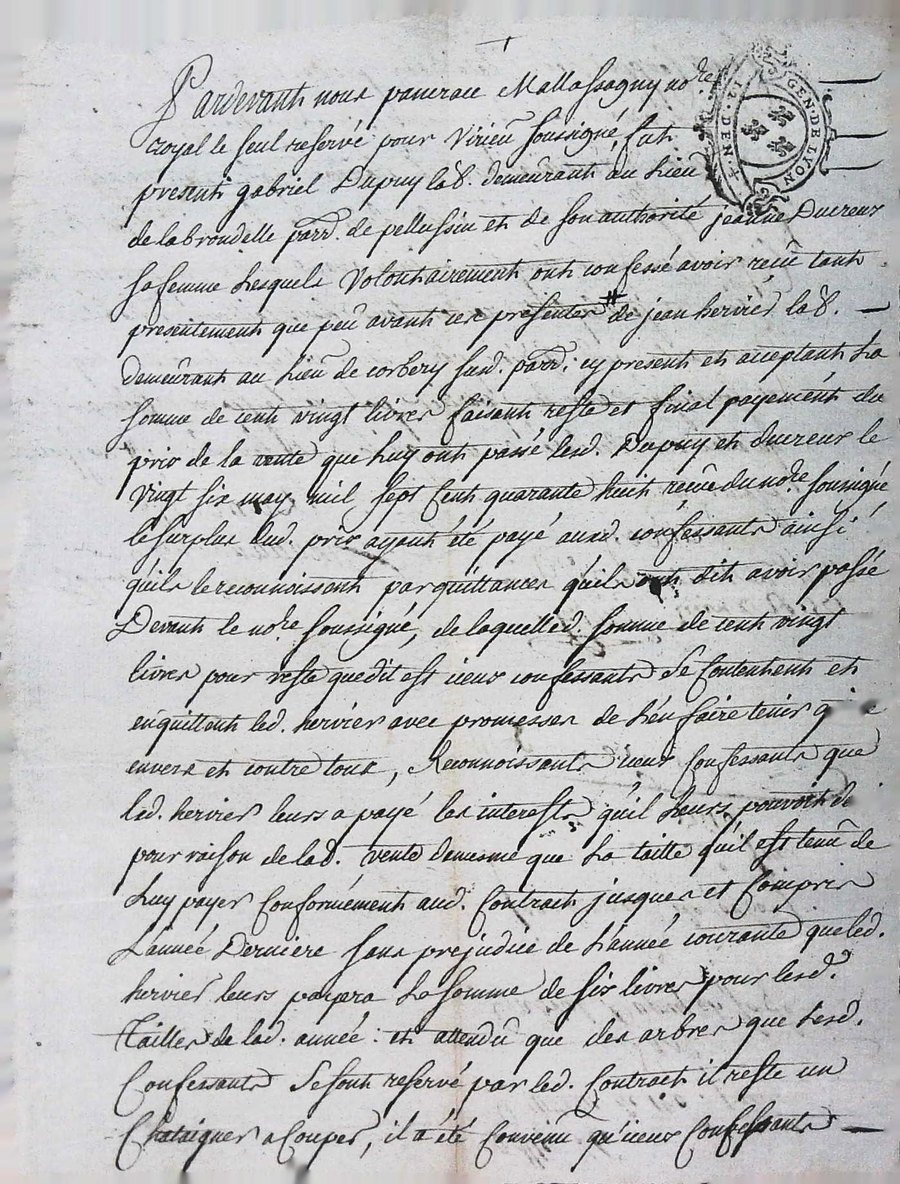 GEN·DE·LYON
12·DEN
Pardevant nous pancrace Mallassagny no.re
royal le seul reservé pour Virieu soussigné, fut
present gabriel Dupuy lab. demeurant au Lieu
de labrondelle parr. de pellussin et de son authorité jeanne Ducreux
sa femme Lesquels Volontairement ont confessé avoir recû tant
presentement que peû avant ces presentes # de jean hervier lab.
demeurant au Lieû de corbery susd. parr. cy present et acceptant La
somme de cent vingt livres faisant reste et final payement du
prix de la vente que Luy ont passé lesd. Dupuy et ducreux le
Vingt six may mil sept Cent quarante huit recûe du no.re soussigné
le surplus dud. prix ayant été payé auxd. confessants ainsi
quils le reconnoissent par quittances quils ont dit avoir passé
Devant le no.re soussigné, de laquelled. somme de cent vingt
livres pour reste que dit est iceux confessants se Contentent et
en quittent led. hervier avec promesses de L'en faire tenir q
envers et contre tous, Reconnoissants iceux Confessants que
led. hervier leurs a payé les interests qu'il Leurs pouvoit de
pour raison de lad. vente demesme que La taille qu'il est tenû de
Luy payer Conformément aud. Contract jusques et Compris
L'année Derniere sans prejudice de L'année courante que led.
hervier leurs payera La somme de six livres pour lesd.
Tailles de lad. année: et attendû que des arbres que Lesd.
Confessants se sont reservé par led. Contract il reste un
Chataigner a Couper, il a été Convenu qu'iceux Confessants